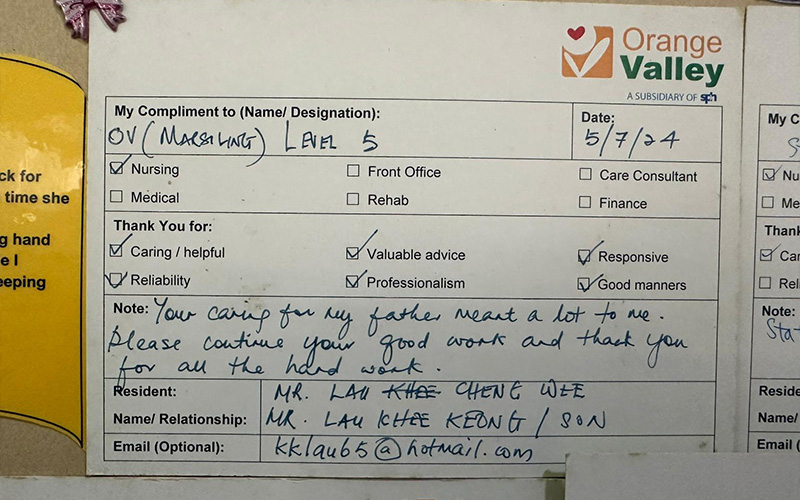 ck for
time she
g hand
e I
eeping
Orange
Valley
A SUBSIDIARY OF sph
My Compliment to (Name/ Designation):
OV (MARSILING) LEVEL 5
Date:
5/7/24
Nursing
Front Office
Care Consultant
Medical
Rehab
Finance
Thank You for:
Caring / helpful
Valuable advice
Responsive
Reliability
Professionalism
Good manners
Note: Your caring for my father meant a lot to me.
Please continue your good work and thank you
for all the hard work.
Resident: MR. LAU KHEE CHENG WEE
Name/ Relationship: MR. LAU KHEE KEONG / SON
Email (Optional): kklau65@hotmail.com
My C
Nu
Me
Thank
Car
Reli
Note:
Sta
Reside
Name/
Email (